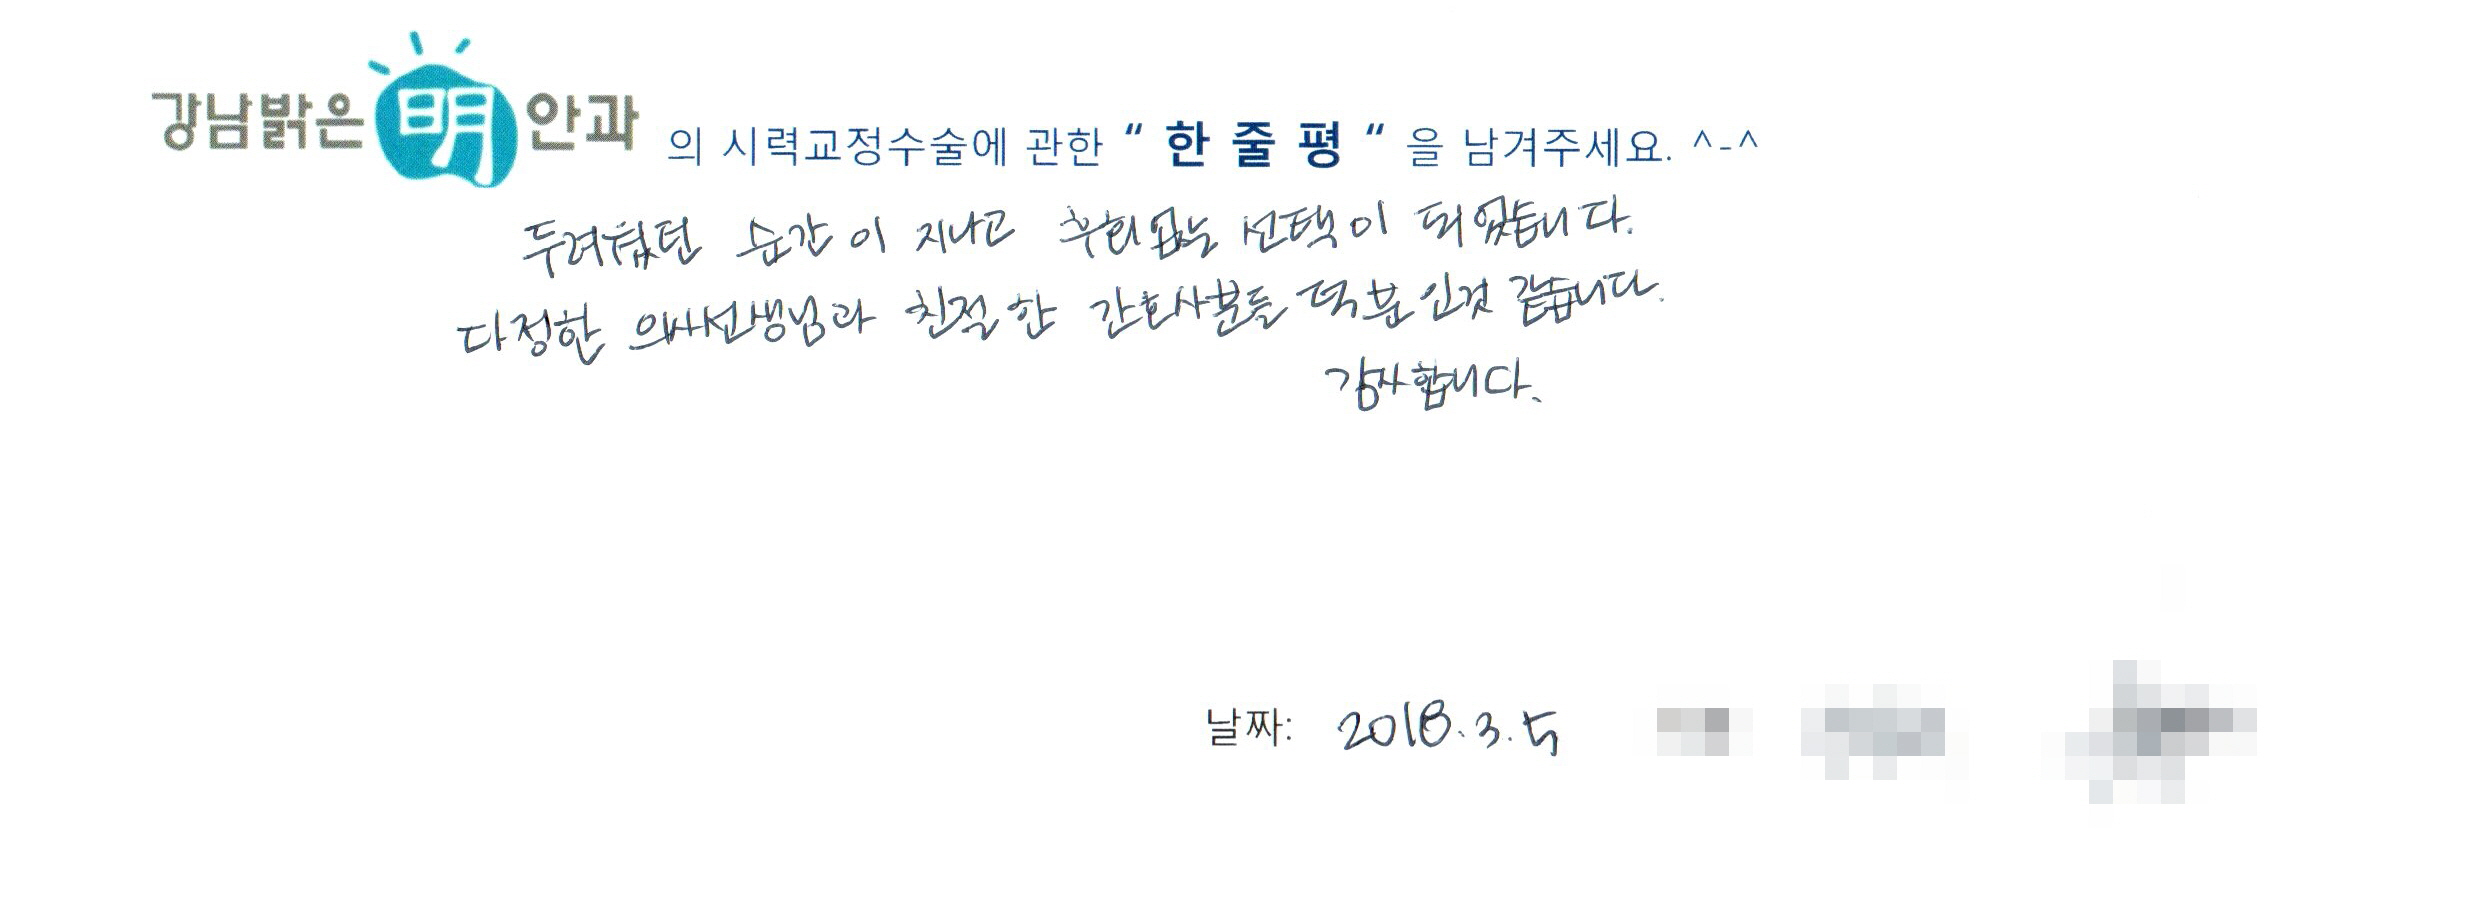 강남밝은 明 안과 의 시력교정수술에 관한 “ 한 줄 평 “ 을 남겨주세요. ^-^
두려웠던 순간이 지나고 후회없는 선택이 되었습니다.
다정한 의사선생님과 친절한 간호사분들 덕분인것 같습니다.
감사합니다.
날짜: 2018.3.5